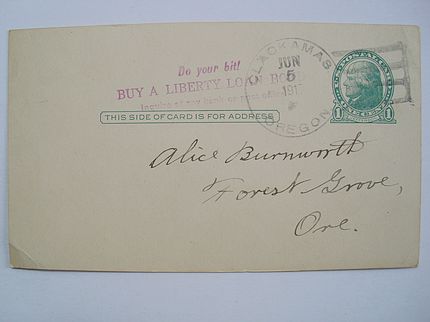 Do your bit!
BUY A LIBERTY LOAN BOND
Inquire at any bank or post office
THIS SIDE OF CARD IS FOR ADDRESS
CLACKAMAS
JUN
5
191
OREGON
U.S. POSTAL CARD
1 1
Alice Burnworth
Forest Grove,
Ore.